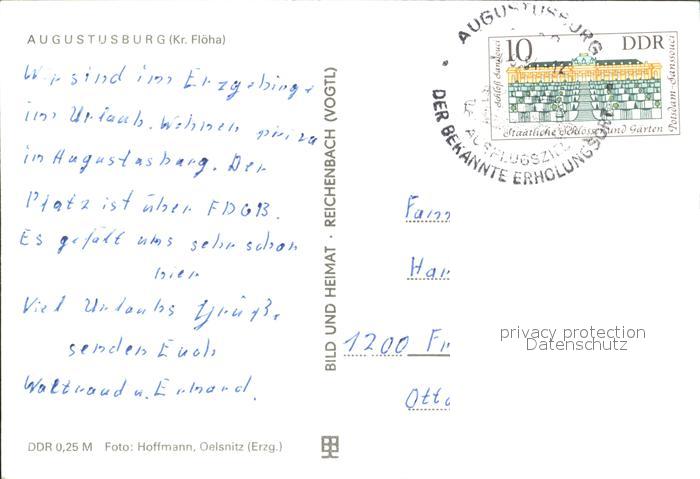 AUGUSTUSBURG (Kr. Flöha)
Wir sind im Erzgebirge
im Urlaub. Wohnen privat
in Augustusburg. Der
Platz ist über FDGB.
Es gefällt uns sehr schön
hier
Viel Urlaubs Grüße,
senden Euch
Waltraud u. Erhard.
DDR 0,25 M Foto: Hoffmann, Oelsnitz (Erzg.)
BILD UND HEIMAT · REICHENBACH (VOGTL)
AUGUSTUSBURG
AUSFLUGSZIEL
DER BEKANNTE ERHOLUNGSORT
10 DDR
Schloß Sanssouci
Potsdam-Sanssouci
Staatliche Schlösser und Gärten
Fam
Har
1200 Fr
Otto
privacy protection
Datenschutz